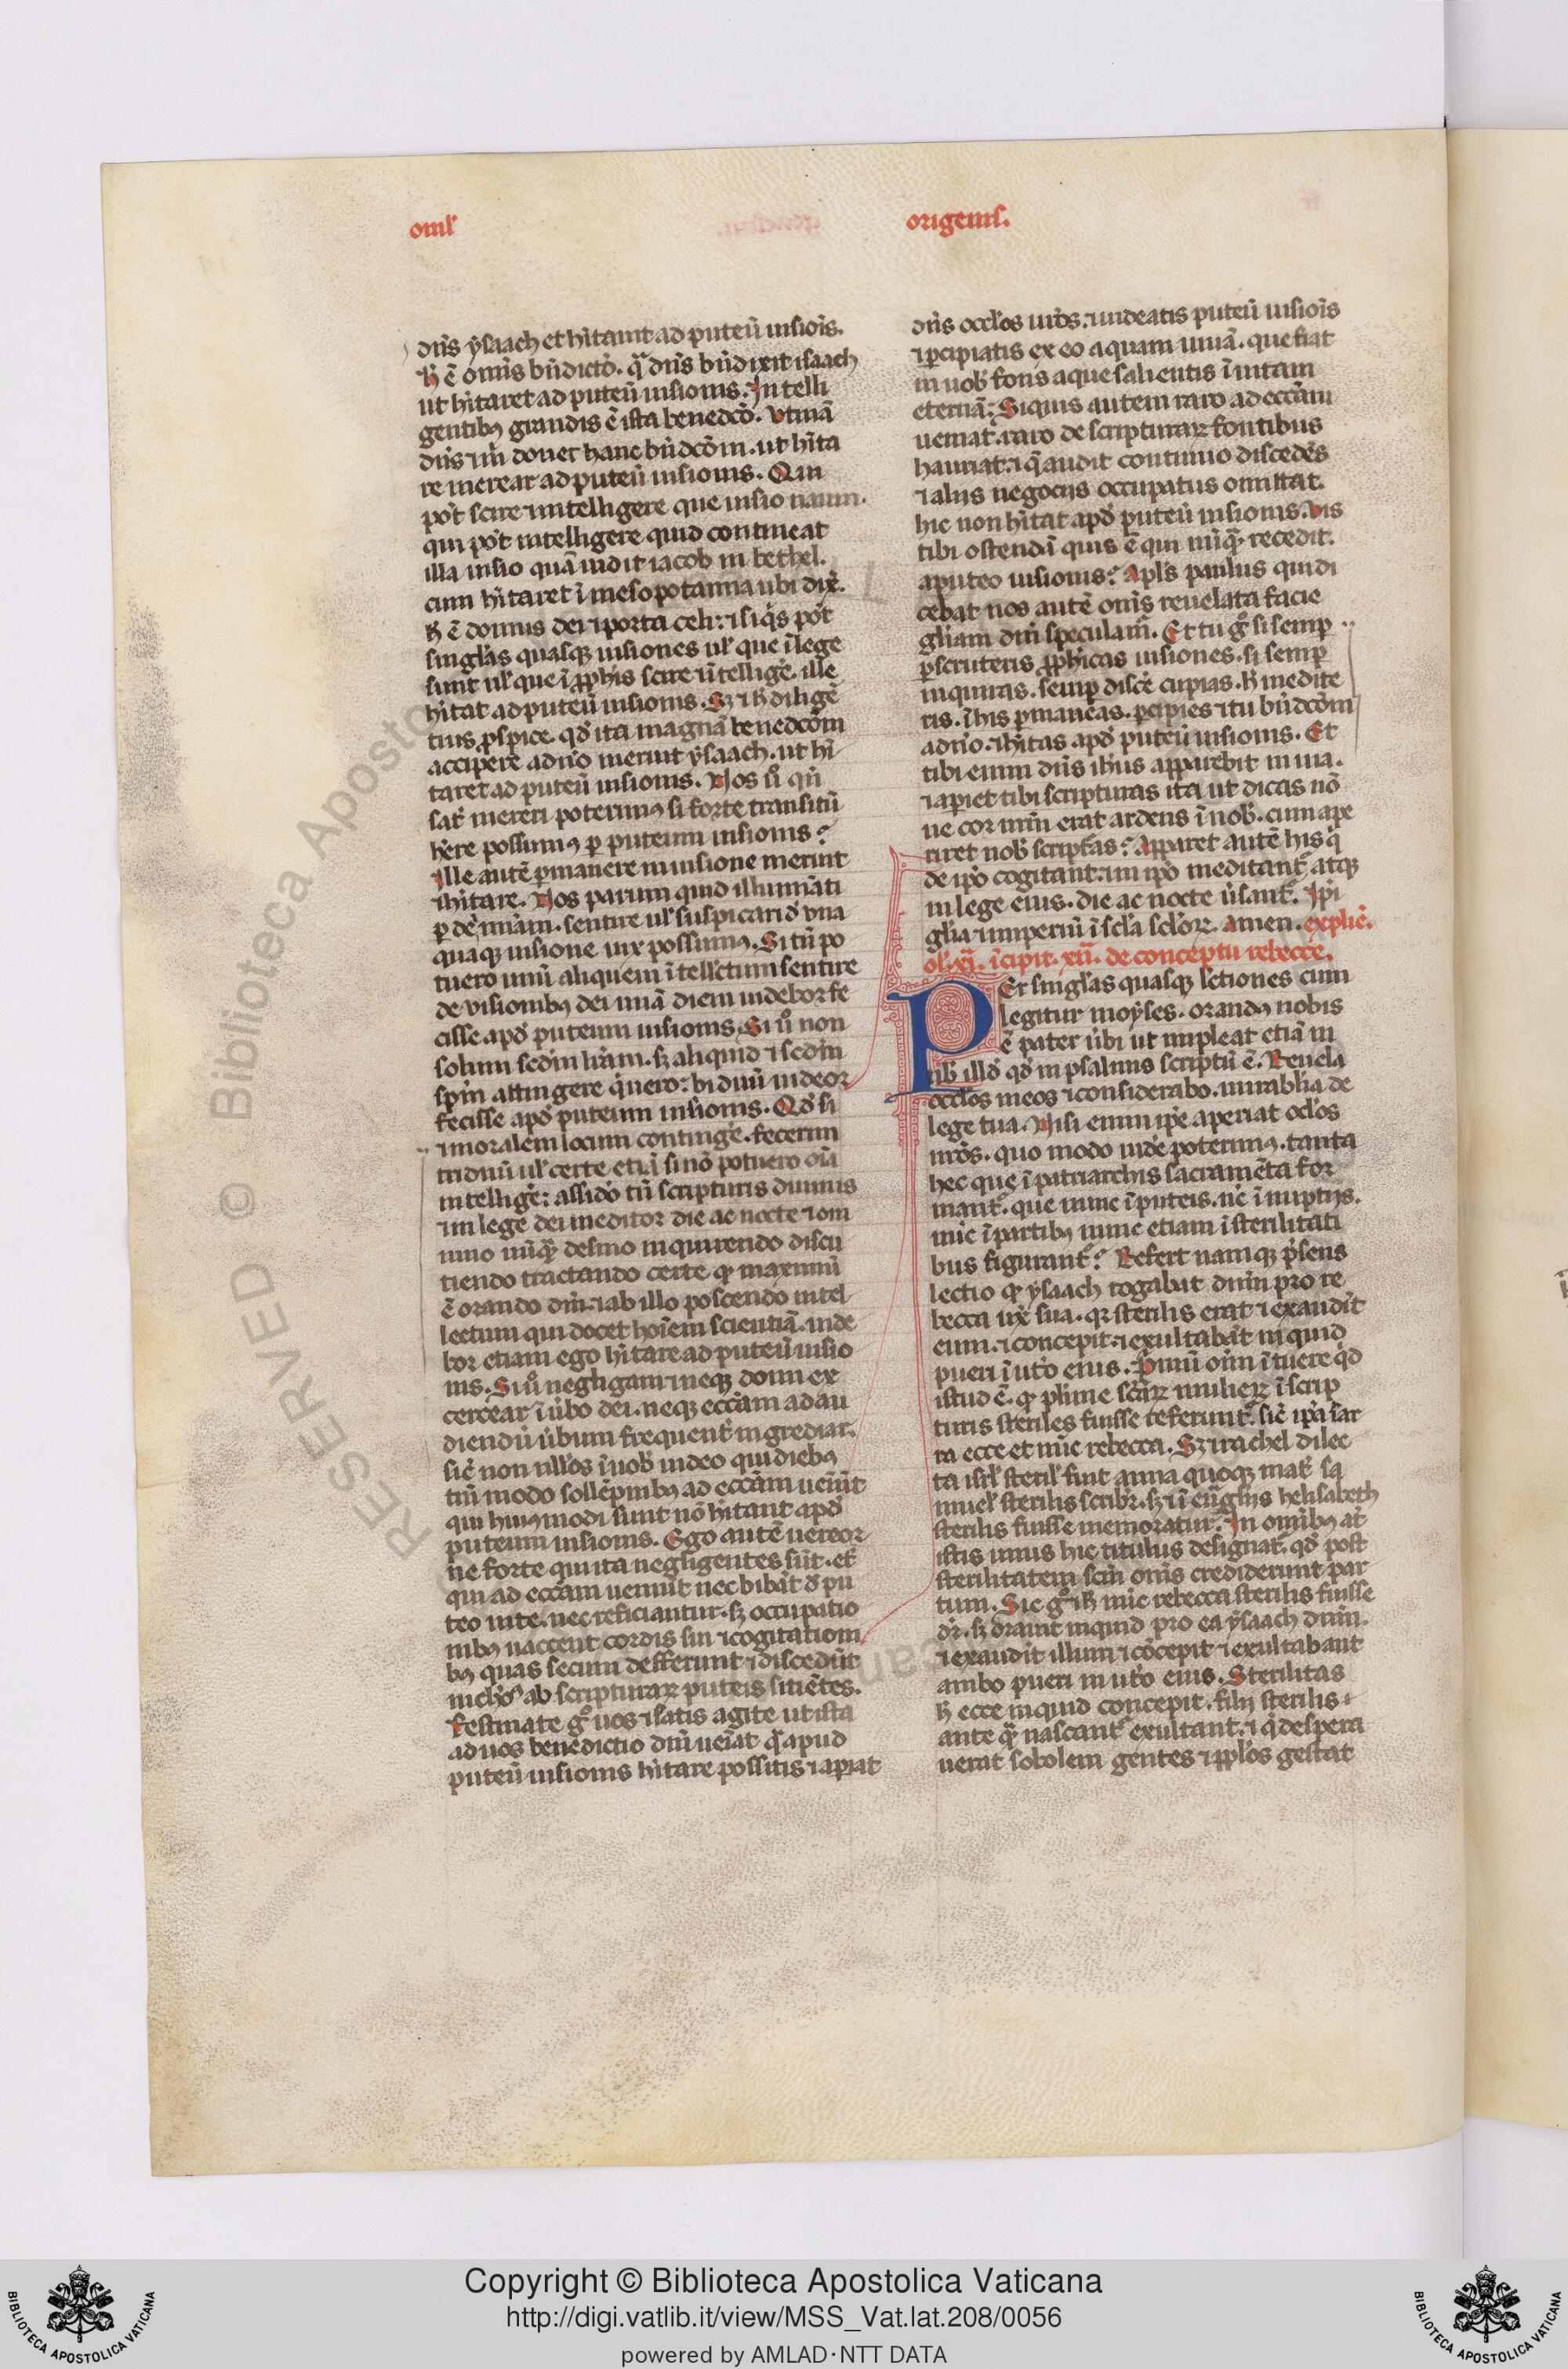 omł
origenis.
dn̄s ẏsaach et hītauit ad puteū uisiōis.
h̄ ē om̄is bn̄dictō. qͣ dn̄s bn̄dixit isaach
ut hītaret ad puteū uisionis. Intelli
gentibꝫ grandis ē ista benedcō. Vtinā
dn̄s ⁊ m̄ donet hanc bn̄dcōm. ut hīta
re merear ad puteū uisionis. Qui
pōt scire ⁊ intelligere que uisio
qui pōt intelligere quid contineat
illa uisio quā uidit iacob in bethel.
cum hītaret ī mesopotamia ubi dix̄.
h̄ ē domus dei ⁊ porta celi: ⁊ si qͥs pōt
singl̄as quasqꝫ uisiones ul̄ que ī lege
sunt ul̄ que ī ꝓph̄is scire ⁊ ītelligē. ille
hītat ad puteū uisionis. Sꝫ ⁊ h̄ diligē
tius ꝑspice. qd̄ ita magnā benedcōm
accipere a dn̄o meruit ẏsaach. ut hī
taret ad puteū uisionis. Nos u͛o qn̄
sat̄ mereri poterimꝰ si forte transitū
hēre possumꝰ ꝑ puteum uisionis?
Ille autē ꝑmanere in uisione meruit
⁊ hītare. Nos parum quid illuminati
ꝑ dei mīam. sentire ul̄ suspicari d̄ una
quaqꝫ uisione uix possumꝰ. Si tn̄ po
tuero unū aliquem ītell̄ctum sentire
de visionibꝫ dei unā diem uidebor fe
cisse apd̄ puteum uisionis. Si u͛o non
solum scd̄m lr̄am. sꝫ aliquid ⁊ scd̄m
spm̄ attingere qͥuero: biduū uideor
fecisse apd̄ puteum uisionis. Qd̄ si
⁊ moralem locum contingē. fecerim
triduū ul̄ certe etiā si nō potuero oīa
intelligē: assido tn̄ scripturis diuinis
⁊ in lege dei meditor die ac nocte ⁊ om
nino nūqͣ desino inquirendo discu
tiendo tractando certe qꝫ maximū
ē orando dm̄. ⁊ ab illo poscendo intel
lectum qui docet hoīem scientiā. uide
bor etiam ego hītare ad puteū uisio
nis. Si u͛o negligam neqꝫ domi ex
cercear ī ūbo dei. neqꝫ ecclām ad au
diendū ūbum frequent̄ ingrediar.
sic̄ non null̄os ī uob̄ uideo qui diebꝫ
tm̄ modo sollēpnibꝫ ad eccām ueniūt
qui huiꝰmodi sunt nō hītant apd̄
puteum uisionis. Ego autē uereor
ne forte qui ita negligentes sūt. et̄
qui ad eccām ueniūt nec bibāt d̄ pu
teo uite. nec reficiantur. sꝫ occupatio
nibꝫ uaccent cordis sui ⁊ cogitationi
bꝫ quas secum defferunt ⁊ discedūt
ab scripturaꝝ puteis sitiētes.
Festinate gͦ uos ⁊ satis agite ut ista
ad uos benedictio dn̄i ueīat qͣ apud
puteū uisionis hītare possitis ⁊ aꝑiat
dn̄s occl̄os uros. ⁊ uideatis puteū uisiōis
⁊ ꝑcipiatis ex eo aquam uiuā. que fiat
in uob̄ fons aque salientis ī uitam
eternā: Siquis autem raro ad eccām
ueniat. raro de scripturaꝝ fontibus
hauriat. ⁊ qͣ audit continuo discedēs
⁊ aliis negociis occupatus omittat.
hic non hītat apd̄ puteū uisionis. Vis
tibi ostendā quis ē qui nūqͣ recedit.
a puteo uisionis? Apl̄s paulus qui di
cebat nos autē om̄s reuelata facie
gl̄iam dn̄i speculam̄. Et tu gͦ si semꝑ
ꝑscruteris ꝓph̄icas uisiones. si semꝑ
inquiras. semꝑ discē cupias. h̄ medite
ris. ī his ꝑmaneas. ꝑcipies ⁊ tu bn̄dcōm
a dn̄o. ⁊ hītas apd̄ puteū uisionis. Et
tibi enim dn̄s ih̄us apparebit in uia.
⁊ apiet tibi scripturas ita ut dicas nō
ne cor nr̄m erat ardens ī nob̄. cum ape
riret nob̄ scriptas? Apparet autē his qͥ
de ip̄o cogitant. ⁊ in ip̄o meditant̄ atqꝫ
in lege eius. die ac nocte ūsant̄. Ip̄i
gl̄ia ⁊ imperiū ī scl̄a scl̄oꝝ. amen. explic̄.
ol̄. xi. īcipit. xii. de conceptu rebecce.
Per singl̄as quasqꝫ lc̄tiones cum
legitur moẏses. orandꝰ nobis
ē pater ūbi ut impleat etiā in
nob̄ illd̄ qd̄ in psalmis scriptū ē. Reuela
occl̄os meos ⁊ considerabo. mirabl̄ia de
lege tua. Nisi enim ip̄e aperiat ocl̄os
nr̄os. quo modo uidē poterimꝰ. tanta
hec que ī patriarchis sacramēta for
mant̄. que nunc ī puteis. nc̄ ī nuptiis.
nūc ī partibꝫ nunc etiam ī sterilitati
bus figurant̄? Refert namqꝫ p̄sens
lectio qꝫ ẏsaach rogabat dn̄m pro re
becca ux̄ sua. qꝛ sterilis erat ⁊ exaudīt
eum. ⁊ concepit. ⁊ exultabāt inquid
pueri ī uto eius. Pͥmū oīm ītuere qͥd
istud ē. qꝫ pl̄ime scāꝝ mulieꝝ ī scrip
turis steriles fuisse referunt̄. sic̄ ip̄a sar
ra ecce et nūc rebecca. Sꝫ ⁊ rachel dilec
ta isrl̄ steril̄ fuit anna quoqꝫ mat̄ sa
muel̄ sterilis scribr̄. sꝫ ⁊ ī euāgliis helisabeth
sterilis fuisse memoratur. In omībꝫ at̄
istis unus hic titulus designat̄. qd̄ post
sterilitatem scm̄ om̄s crediderunt par
tum. Sic gͦ ⁊ h̄ nūc rebecca sterilis fuisse
dr̄. sꝫ orauit inquid pro ea ẏsaach dn̄m.
⁊ exaudīt illum ⁊ cōcepit ⁊ exultabant
ambo pueri in uto eius. Sterilitas
h̄ ecce inquid concepit. filii sterilis ⁊
ante qͣ nascant̄ exultant. ⁊ qͥ despera
uerat sobolem gentes ⁊ ppl̄os gestat
RESERVED © Biblioteca Aposto
Copyright © Biblioteca Apostolica Vaticana
http://digi.vatlib.it/view/MSS_Vat.lat.208/0056
powered by AMLAD·NTT DATA
BIBLIOTECA APOSTOLICA VATICANA
BIBLIOTECA APOSTOLICA VATICANA